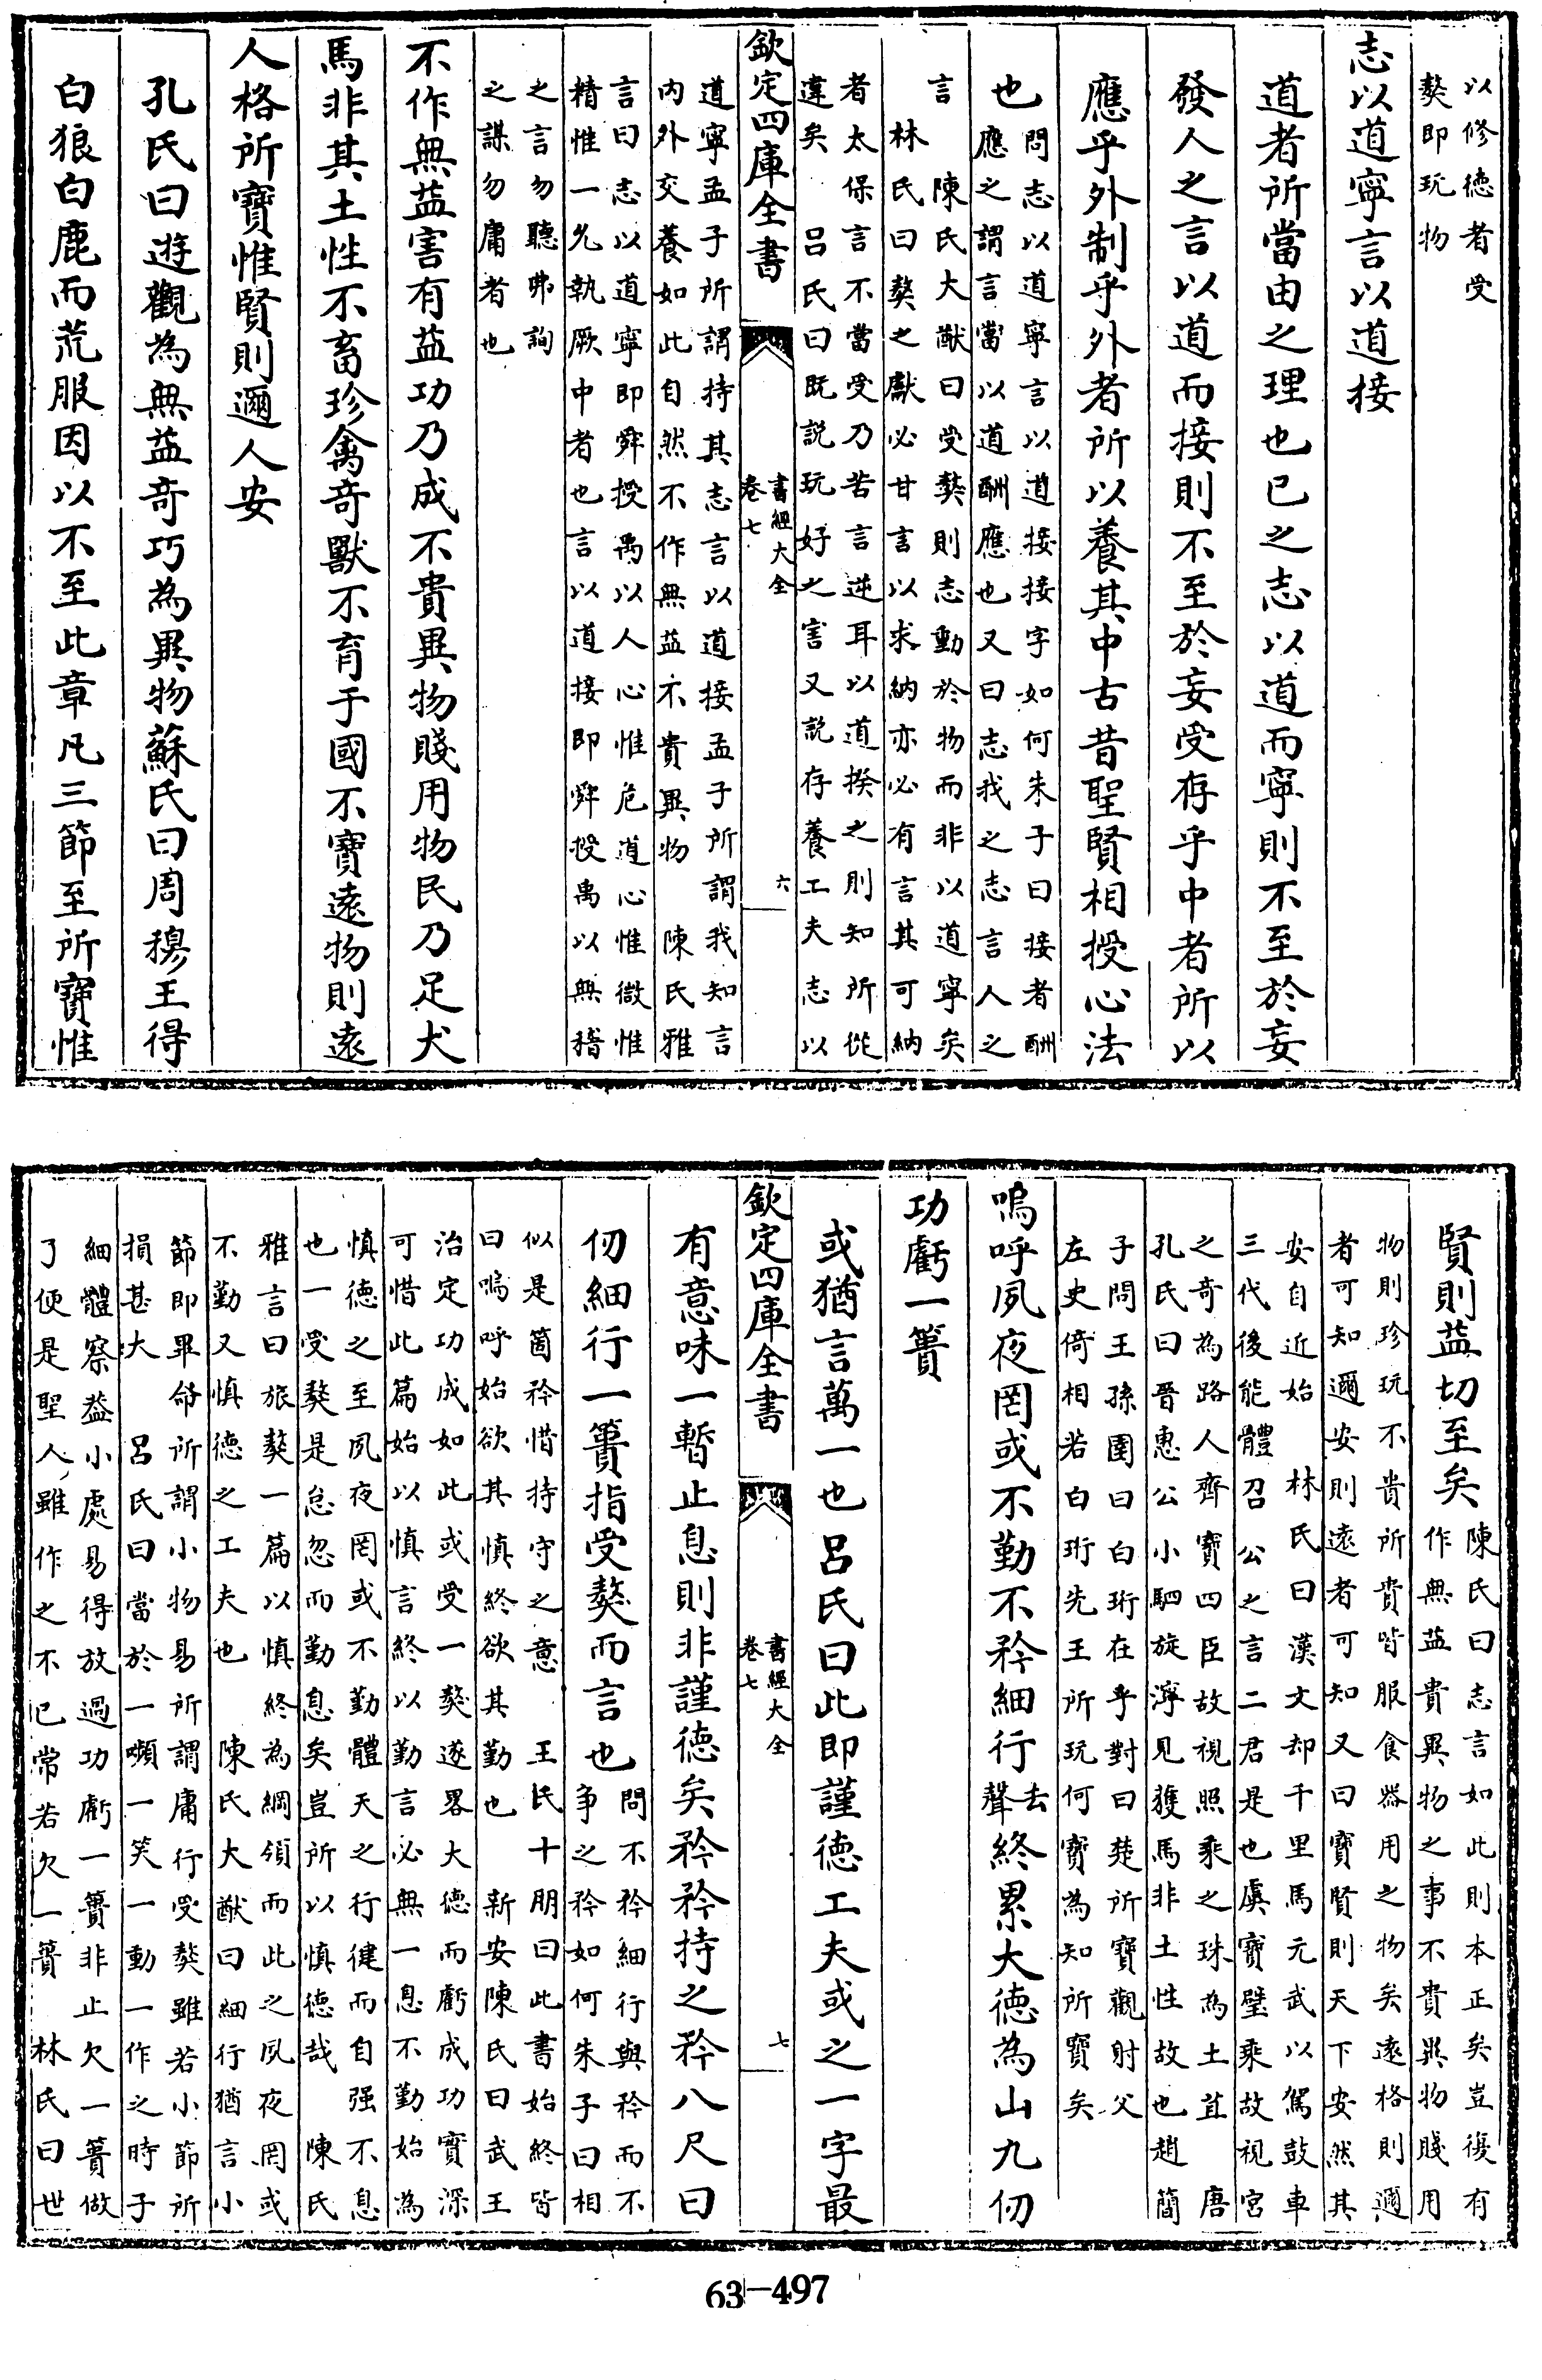 以修德者受
獒即玩物
志以道寧言以道接
道者所當由之理也已之志以道而寧則不至於妄
發人之言以道而接則不至於妄受存乎中者所以
應乎外制乎外者所以養其中古昔聖賢相授心法
也
問志以道寧言以道接接字如何朱子曰接者酬
應之謂言當以道酬應也又曰志我之志言人之
言　陳氏大猷曰受獒則志動於物而非以道寧矣
林氏曰獒之獻必甘言以求納亦必有言其可納
者太保言不當受乃苦言逆耳以道揆之則知所從
違矣　呂氏曰既說玩好之害又說存養工夫志以
欽定四庫全書
書經大全
卷七
六
道寧孟子所謂持其志言以道接孟子所謂我知言
內外交養如此自然不作無益不貴異物　陳氏雅
言曰志以道寧即舜授禹以人心惟危道心惟微惟
精惟一允執厥中者也言以道接即舜授禹以無稽
之言勿聽弗詢
之謀勿庸者也
不作無益害有益功乃成不貴異物賤用物民乃足犬
馬非其土性不畜珍禽奇獸不育于國不寶遠物則遠
人格所寶惟賢則邇人安
孔氏曰遊觀為無益奇巧為異物蘇氏曰周穆王得
白狼白鹿而荒服因以不至此章凡三節至所寶惟
賢則益切至矣
陳氏曰志言如此則本正矣豈復有
作無益貴異物之事不貴異物賤用
物則珍玩不貴所貴皆服食器用之物矣遠格則邇
者可知邇安則遠者可知又曰寶賢則天下安然其
安自近始　林氏曰漢文却千里馬元武以駕鼓車
三代後能體召公之言二君是也虞寶璧乘故視宮
之奇為路人齊寶四臣故視照乘之珠為土苴　唐
孔氏曰晉惠公小駟旋濘見獲馬非土性故也趙簡
子問王孫圉曰白珩在乎對曰楚所寶觀射父
左史倚相若白珩先王所玩何寶為知所寶矣
嗚呼夙夜罔或不勤不矜細行去聲終累大德為山九仞
功虧一簣
或猶言萬一也呂氏曰此即謹德工夫或之一字最
欽定四庫全書
書經大全
卷七
七
有意味一暫止息則非謹德矣矜矜持之矜八尺曰
仞細行一簣指受獒而言也
問不矜細行與矜而不
爭之矜如何朱子曰相
似是箇矜惜持守之意　王氏十朋曰此書始終皆
曰嗚呼始欲其慎終欲其勤也　新安陳氏曰武王
治定功成如此或受一獒遂畧大德而虧成功實深
可惜此篇始以慎言終以勤言必無一息不勤始為
慎德之至夙夜罔或不勤體天之行健而自强不息
也一受獒是怠忽而勤息矣豈所以慎德哉　陳氏
雅言曰旅獒一篇以慎終為綱領而此之夙夜罔或
不勤又慎德之工夫也　陳氏大猷曰細行猶言小
節即畢命所謂小物易所謂庸行受獒雖若小節所
損甚大　呂氏曰當於一嚬一笑一動一作之時子
細體察益小處易得放過功虧一簣非止欠一簣做
了便是聖人雖作之不已常若欠一簣　林氏曰世
63-497